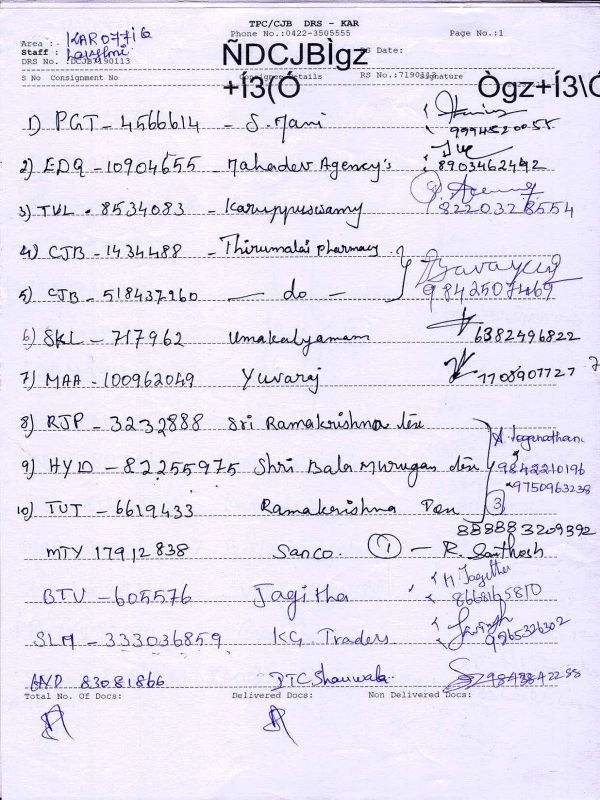 TPC/CJB DRS - KAR
Phone No.:0422-3505555 Page No.:1
Area : KAR 07716
Staff : Layshmi
DRS No. :DCJB7190113 RS Date:
ÑDCJBÌgz
S No Consignment No Consignee Details RS No.:7190113 Signature
+Í3(Ó Ògz+Í3\Ó
1) PGT - 4566614 - S. Mani
9994520055
2) EDQ - 10904655 - Mahadev Agency's 8903462492
3) TVL - 8534083 - Karuppuswamy 8220328554
4) CJB - 1434488 - Thirumalai pharmacy
5) CJB - 518437260 - do - 9842507469
6) SKL - 717962 Umakalyamam 6382496822
7) MAA - 100962049 Yuvaraj 7708907727
8) RJP - 3232888 Sri Ramakrishna
A. Jaganathan
9) HYD - 82255975 Shri Bala Murugan 9842210196
9750963238
10) TUT - 6619433 Ramakrishna 3
888883209392
MTY 17912838 Sanco. 1 - R. Santhosh
BTU - 605576 Jagitha 8668165810
SLM - 333036859 KG Traders 9565326302
HYD 83081866 DTC Shauwala 9843842288
Total No. Of Docs: Delivered Docs: Non Delivered Docs: